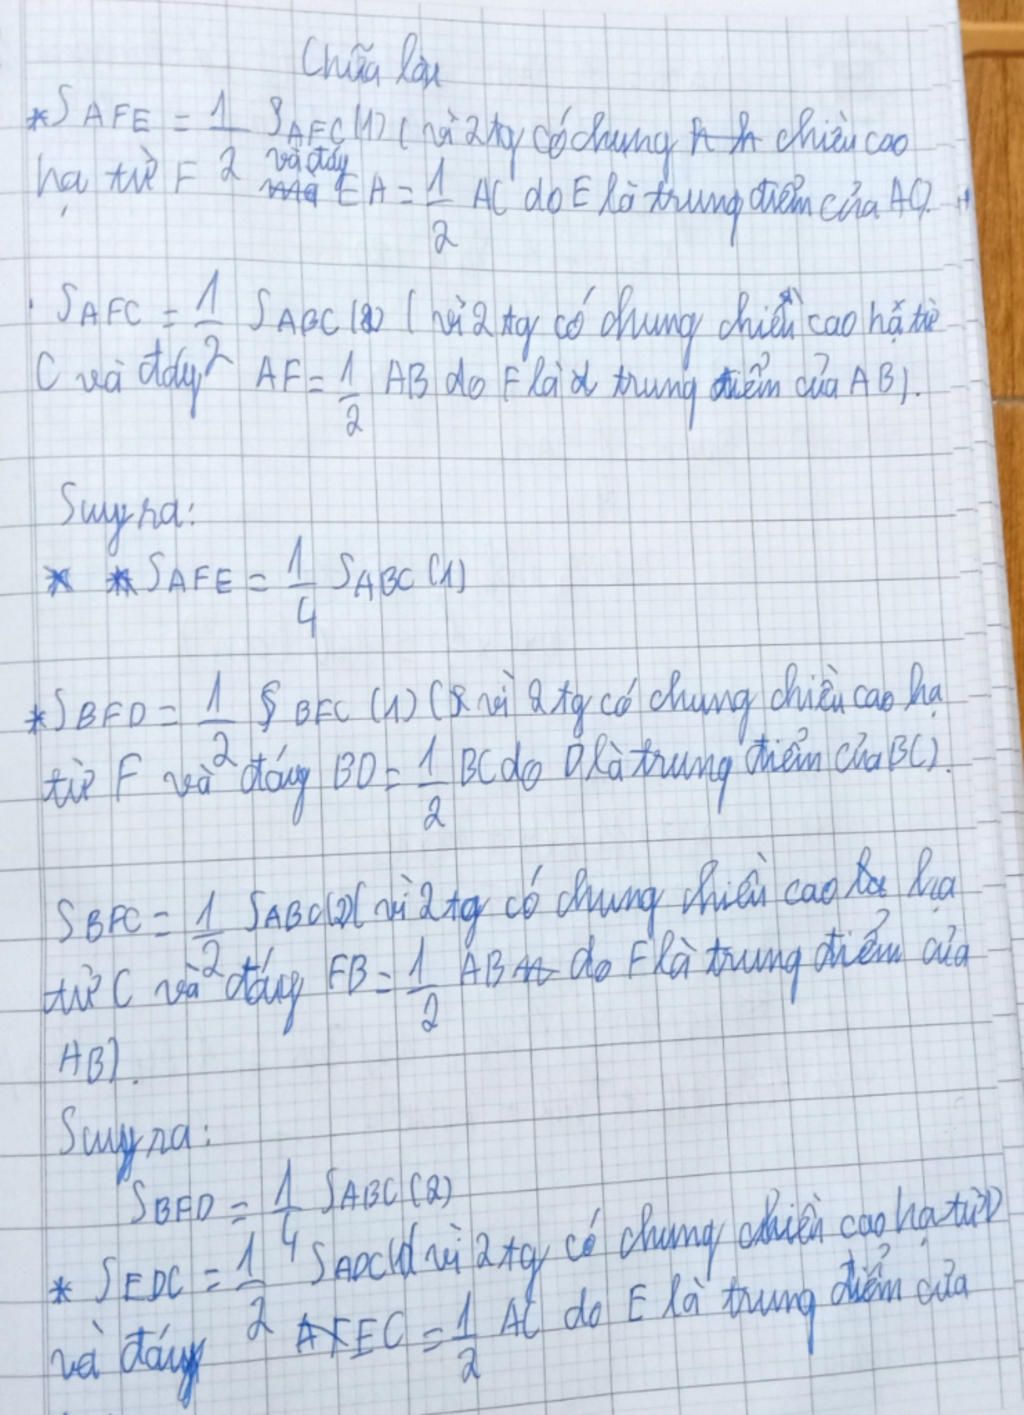 Chữa bài
* SAFE = 1/2 SAFC (1) ( vì 2 tg có chung chiều cao
và đáy
hạ từ F EA = 1/2 AC do E là trung điểm của AC).
SAFC = 1/2 SABC (2) ( vì 2 tg có chung chiều cao hạ từ
C và đáy AF = 1/2 AB do F là trung điểm của AB).
Suy ra:
* * SAFE = 1/4 SABC (1)
* SBFD = 1/2 SBFC (1) ( vì 2 tg có chung chiều cao hạ
từ F và đáy BD = 1/2 BC do D là trung điểm của BC).
SBFC = 1/2 SABC (2) ( vì 2 tg có chung chiều cao hạ
từ C và đáy FB = 1/2 AB do F là trung điểm của
AB).
Suy ra:
SBFD = 1/4 SABC (2)
* SEDC = 1/2 SADC (1) ( vì 2 tg có chung chiều cao hạ từ D
và đáy EC = 1/2 AC do E là trung điểm của